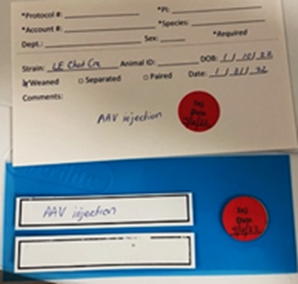 *Protocol #: *PI:
*Account #: *Species:
Dept.: Sex: *Required
Strain: LE Chat Cre Animal ID: DOB: 1/10/22
Weaned Separated Paired Date: 1/31/22
Comments:
AAV injection
Inj
Date
AAV injection
Inj
Date